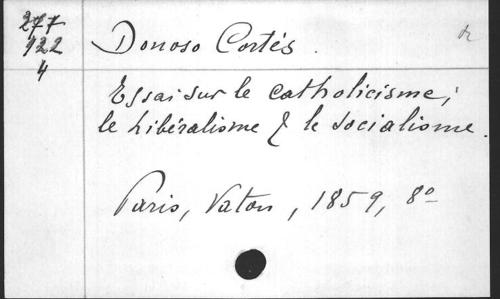 277
922
4
Donoso Cortés.
Essai sur le catholicisme,
le libéralisme & le socialisme.
Paris, Vaton, 1859, 8°